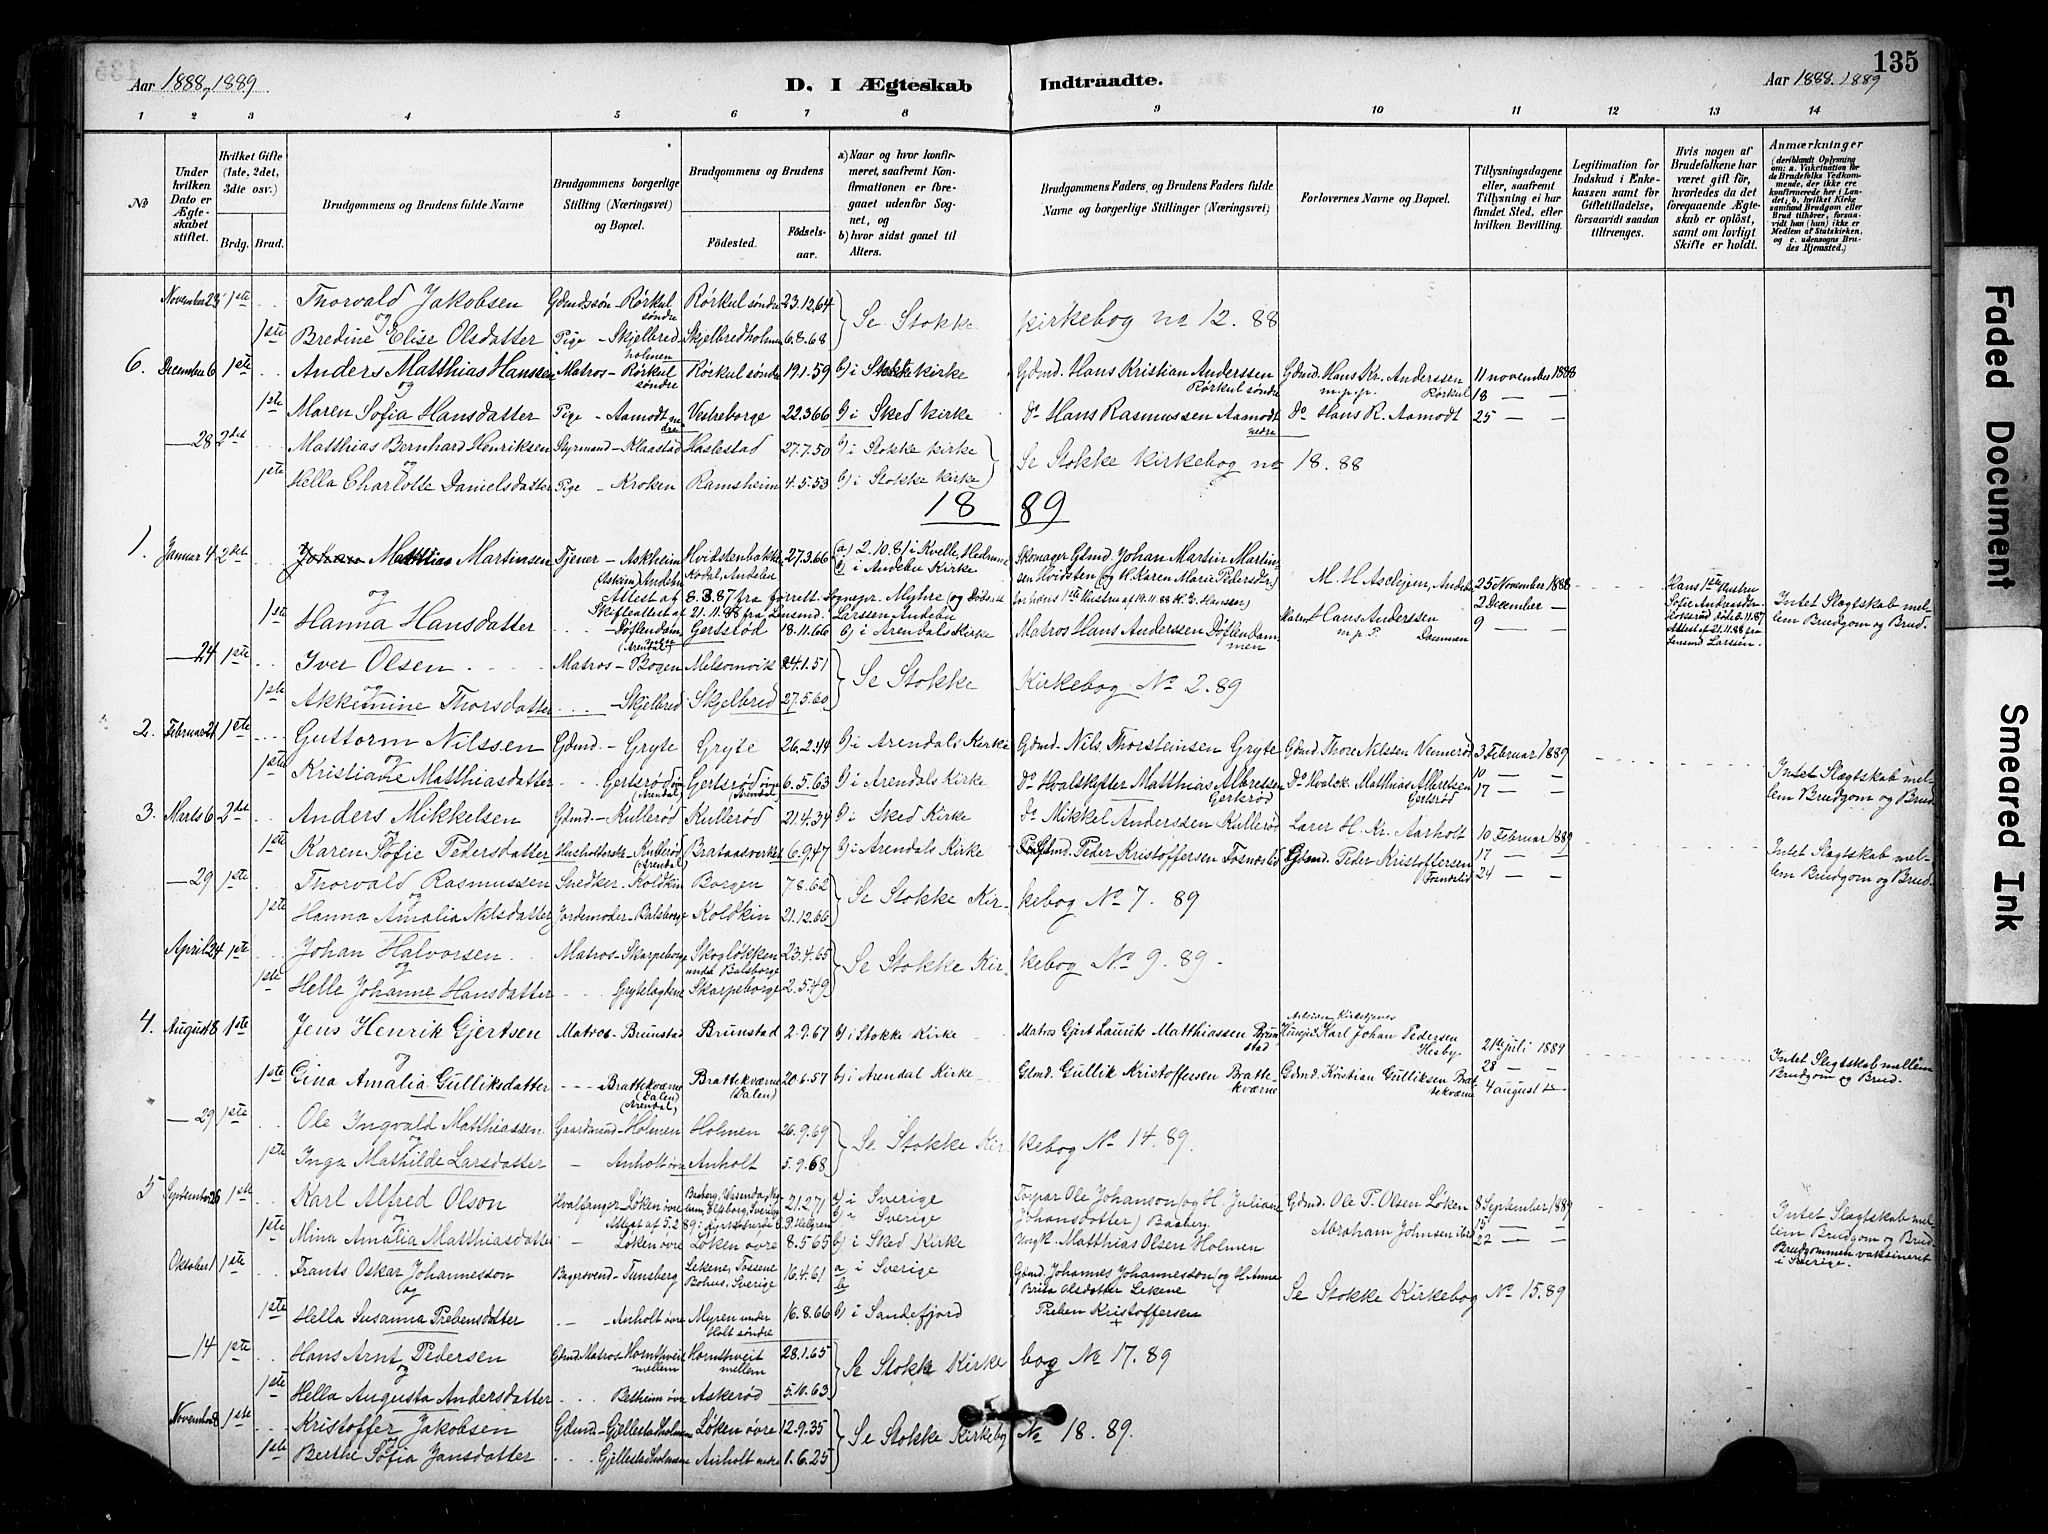 135
Aar 1888, 1889
D. I Ægteskab Indtraadte.
Aar 1888. 1889
1 2 3 4 5 6 7 8 9 10 11 12 13 14
No
Under hvilken Dato er Ægteskabet stiftet.
Hvilket Gifte (1ste, 2det, 3die osv.)
Brdg. Brud.
Brudgommens og Brudens fulde Navne
Brudgommens borgerlige Stilling (Næringsvei) og Bopæl.
Brudgommens og Brudens
Fødested. Fødselsaar.
a) Naar og hvor konfirmeret, saafremt Konfirmationen er foregaaet udenfor Sognet, og
b) hvor sidst gaaet til Alters.
Brudgommens Faders, og Brudens Faders fulde Navne og borgerlige Stillinger (Næringsvei)
Forlovernes Navne og Bopæl.
Tillysningsdagene eller, saafremt Tillysning ei har fundet Sted, efter hvilken Bevilling.
Legitimation for Indskud i Enkekassen samt for Giftetilladelse, forsaavidt saadan tiltrænges.
Hvis nogen af Brudefolkene har været gift før, hvorledes da det foregaaende Ægteskab er opløst, samt om lovligt Skifte er holdt.
Anmærkninger
(deriblandt Oplysning om: a. Vakcination for de Brudefolks Vedkommende, der ikke ere konfirmerede her i Landet; b. hvilket Kirkesamfund Brudgom eller Brud tilhører, forsaavidt han (hun) ikke er Medlem af Statskirken, og c. udensogns Brudes Hjemsted.)
November 23 1ste Thorvald Jakobsen Gdmdssøn - Rørkul søndre Rørkul søndre 23.12.64 Se Stokke kirkebog no 12. 88
og
1ste Bredine Elise Olsdatter Pige - Skjelbredholmen Skjelbredholmen 6.8.68
6. December 6 1ste Anders Matthias Hanssen Matros - Rørkul søndre Rørkul søndre 19.1.59 b) i Stokke kirke Gdmd. Hans Kristian Anderssen Rørkul søndre Gdmd. Hans Kr. Anderssen m.p.p. Rørkul 11 november 1888
og 18 — —
1ste Maren Sofia Hansdatter Pige - Aamodt nedre Vestreborge 22.3.66 b) i Sked kirke Do Hans Rasmussen Aamodt nedre Do Hans R. Aamodt 25 — —
— 28 2det Matthias Bernhard Henriksen Styrmand - Klaastad Haslestad 27.7.50 b) i Stokke kirke Se Stokke kirkebog no 18. 88
og
1ste Hella Charlotte Danielsdatter Pige - Kroken Ramsheim 4.5.53 b) i Stokke kirke
1889
1. Januar 4 2det Johan Matthias Martinsen Tjener - Askheim (Askim) Andebu Hvidstenbakke Kodal, Andebu 27.3.66 a) 2.10.81 i Kvelle, Hedrum b) i Andebu Kirke Skomager Gdmd. Johan Martin Martinsen Hvidsten (og H. Karen Marie Pedersdtr.) M. H. Askjem, Andebu 25 November 1888
Attest af 8.3.87 fra forrett. Sogneprs. Myhre (og Dødsatt. for hans 1ste Hustru af 19.11.88 Hanssen)
Skifteattest af 21.11.88 fra Lensmd. Larssen Andebu 2 December —
Hans 1ste Hustru Sofie Andreasdtr. Attest af 21.11.88 fra Lensmd Larssen.
og
1ste Hanna Hansdatter Døflendammen (Arendal) Gertsrød 18.11.66 b) i Arendals Kirke Matros Hans Anderssen Døflendammen Matros Hans Anderssen m.p.P. Dammen 9 — — Intet Slægtskab mellem Brudgom og Brud.
— 24 1ste Iver Olsen Matros - Bogen Melsomvik 24.1.51 Se Stokke Kirkebog No 2. 89
og
1ste Akkemine Thorsdatter - Skjelbred Skjelbred 27.5.60
2. Februar 21 1ste Guttorm Nilssen Gdmd. - Gryte Gryte 26.2.44 b) i Arendals Kirke Gdmd. Nils Thorsteinsen Gryte Gdmd Thore Nilssen Vennerød 3 Februar 1889
og 10 — —
1ste Kristiane Matthiasdatter Gertsrød øvre (Arendal) Gertsrød øvre (Arendal) 6.5.63 b) i Arendals Kirke Do Hvalskytter Matthias Albretsen Gertsrød Do Hvalsk. Matthias Albretsen Gertsrød 17 — — Intet Slægtskab mellem Brudgom og Brud.
3. Marts 6 2det Anders Mikkelsen Gdmd. - Kullerød Kullerød 21.4.34 b) i Sked Kirke do Mikkel Anderssen Kullerød Lærer H. Kr. Aarholt 10 Februar 1889
og 17 — —
1ste Karen Sofie Pedersdatter Husholderske - Kullerød (Arendal) Brataasverket 6.9.47 b) i Arendals Kirke Gdmd. Peder Kristoffersen Fosnæslid Gdmd. Peder Kristoffersen Fosnæslid 24 — — Intet Slægtskab mellem Brudgom og Brud.
— 29 1ste Thorvald Rasmussen Snedker - Koldkin Borgen 7.8.62 Se Stokke Kirkebog No 7. 89
og
1ste Hanna Amalia Nilsdatter Jordemoder - Balsborge Koldkin 21.12.66
April 24 1ste Johan Halvorsen Matros - Skarpeborge Skogløkken under Balsborge 23.4.65 Se Stokke Kirkebog No 9. 89.
og
1ste Helle Johanne Hansdatter Grytelagdene Skarpeborge 2.5.49
4. August 8 1ste Jens Henrik Gjertsen Matros - Brunstad Brunstad 2.9.67 b) i Stokke Kirke Matros Gjert Laurits Matthiassen Brunstad Husejer Karl Johan Pedersen Hesby 21de juli 1889
og 28 — —
1ste Gina Amalia Gulliksdatter Brattekværne (Dalen) (Arendal) Brattekværne (Dalen) 20.6.57 b) i Arendal Kirke Gdmd. Gullik Kristoffersen Brattekværne Gdmd. Kristian Gulliksen Brattekværne 4 august — Intet Slegtskab mellem Brudgom og Brud.
— 29 1ste Ole Ingvald Matthiassen Gaardmand - Holmen Holmen 26.9.69 Se Stokke Kirkebog No 14. 89.
og
1ste Inga Mathilde Larsdatter - Anholt øvre Anholt 5.9.68
5 September 26 1ste Karl Alfred Olson Hvalfanger - Løken øvre 21.2.71 a) i Sverige b) i Sverige Torpar Ole Johanson (og H. Juliane Johansdotter) Basberg. Gdmd. Ole P. Olsen Løken 8 September 1889
og Attest af 5.2.89 15 — —
1ste Mina Amalia Matthiasdatter - Løken øvre Løken øvre 8.5.65 b) i Sked Kirke Ungk. Matthias Olsen Holmen Abraham Johnsen ibid. 22 — — Intet Slægtskab mellem Brudgom og Brud. Brudgommen vaksineret i Sverige.
Oktober 1 1ste Frants Oskar Johannesson Bagersvend - Tunsberg Lekene, Tossene Bohus. Sverige 16.4.61 a b i Sverige Gdmd. Johannes Johannesson (og H. Anna Brita Olsdatter Lekene Se Stokke Kirkebog No 15. 89
og
1ste Hella Susanna Prebensdatter - Anholt øvre Myren under Holt søndre 16.8.66 b) i Sandefjord Preben Kristoffersen
— 14 1ste Hans Arnt Pedersen Gdmd. Matros - Hornthveit mellem Hornthveit mellem 28.1.65 Se Stokke Kirkebog No 17. 89
og
1ste Hella Augusta Andersdatter Betheim øvre Askerød 5.10.63
November 8 1ste Kristoffer Jakobsen Gdmd - Gjellestadholmene Løken øvre 12.9.35 Se Stokke Kirkebog No 18. 89.
og
1ste Berthe Sofia Jansdatter Gjellestadholmene Anholt nedre 1.6.25
Faded Document
Smeared Ink